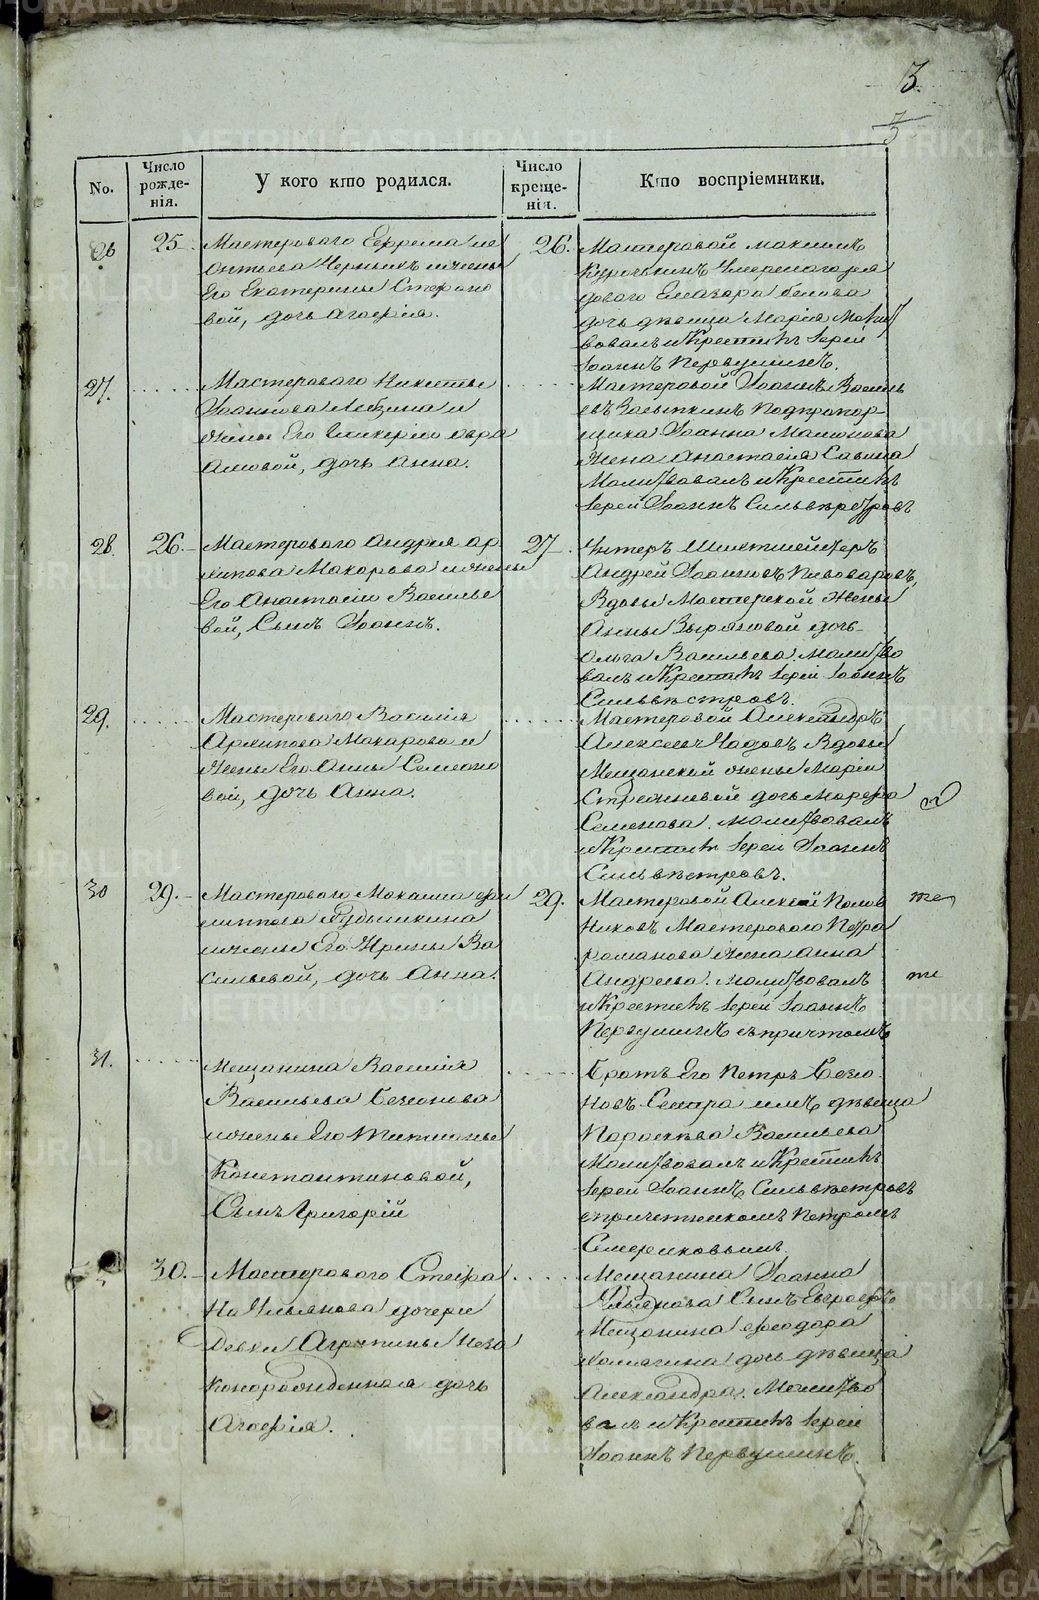 3.
No.
Число рожде-нія.
У кого кто родился.
Число креще-нія.
Кто воспріемники.
26
25
Мастероваго Ефрема ле
онтьева Черныхъ и жены
Его Екатерины Стефано
вой, дочь Агафія.
26.
Мастеровой Максимъ
дочь дѣвица Марія Молит
вовалъ и Крестилъ Іерей
Іоаннъ Первушинъ.
27.
Мастероваго Никиты
Іоаннова и
жены Его Гликеріи Авра
амовой, дочь Анна.
Мастеровой Іоаннъ Василь
евъ Подпрапор-
щика Іоанна
Жена Анастасія Савина
Молитвовалъ и Крестилъ
Іерей Іоаннъ Сильвестровъ
28.
26.
Мастероваго Андрея Ар
хипова Макарова и жены
Его Анастасіи Василье
вой, Сынъ Іоаннъ.
27
Унтеръ Шихтмейстеръ
Андрей Іоанновъ Пивоваровъ,
Вдовы Мастерской Жены
Анны Зыряновой дочь
Ольга Васильева. Молитво
валъ и Крестилъ Іерей Іоаннъ
Сильвестровъ.
29.
Мастероваго Василія
Архипова Макарова и
Жены Его Анны Семено
вой, дочь Анна.
Мастеровой Александръ
Алексеевъ Чадовъ Вдовы
Мещанской жены Маріи
дочь Марфа
Семенова. Молитвовалъ
и Крестилъ Іерей Іоаннъ
Сильвестровъ.
30
29.
Мастероваго Максима Фи
липпова
и жены Его Ирины Ва
сильевой, дочь Анна.
29.
Мастеровой Алексей Попов
Мастероваго Петра
романова жена Анна
Андреева. Молитвовалъ
и Крестилъ Іерей Іоаннъ
Первушинъ съ причтомъ
31.
Мещанина Василія
Васильева
и жены Его Татіаны
Константиновой,
Сынъ Григорій
Братъ Его Петръ
новъ Сестра дѣвица
Параскева Васильева
Молитвовалъ и Крестилъ
Іерей Іоаннъ Сильвестровъ
съ причетникомъ Петромъ
30.
Мастероваго Стефа
на Ульянова дочери
Девки Агрипины Неза
коннорожденная дочь
Агафія.
Мещанина Іоанна
Ульянова Сынъ Евграфъ
Мещанина Феодора
дочь дѣвица
Александра. Молитво
валъ и Крестилъ Іерей
Іоаннъ Первушинъ.
METRIKI.GASO-URAL.RU